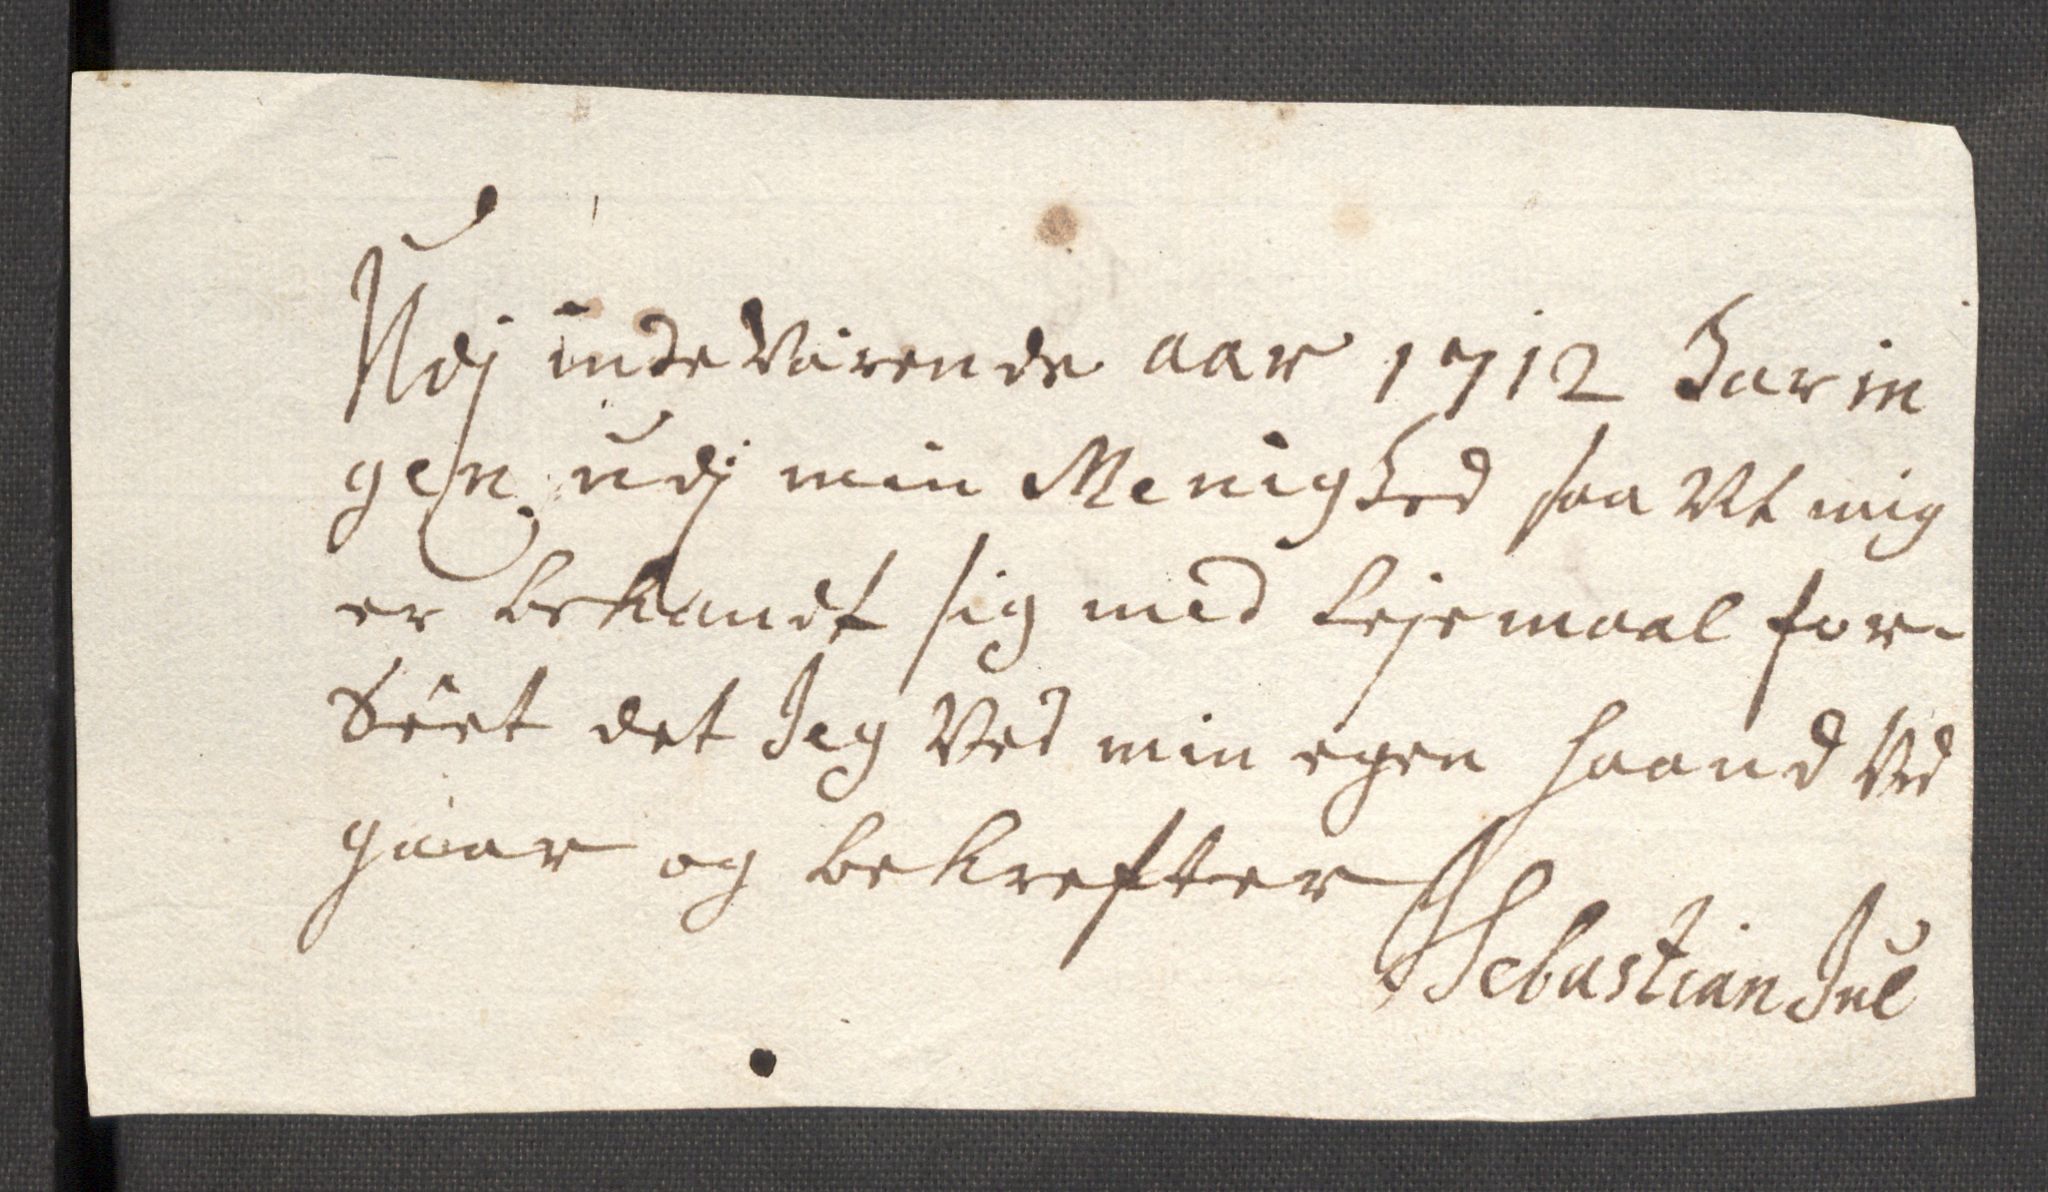 Udj indeVärende aar 1712 har in
gen udj min Menighed saa Vit mig
er bekandt sig med Lejermaal for-
Séet det Jeg Ved min egen haand Ved
gaar og bekrefter
Sebastian Jul